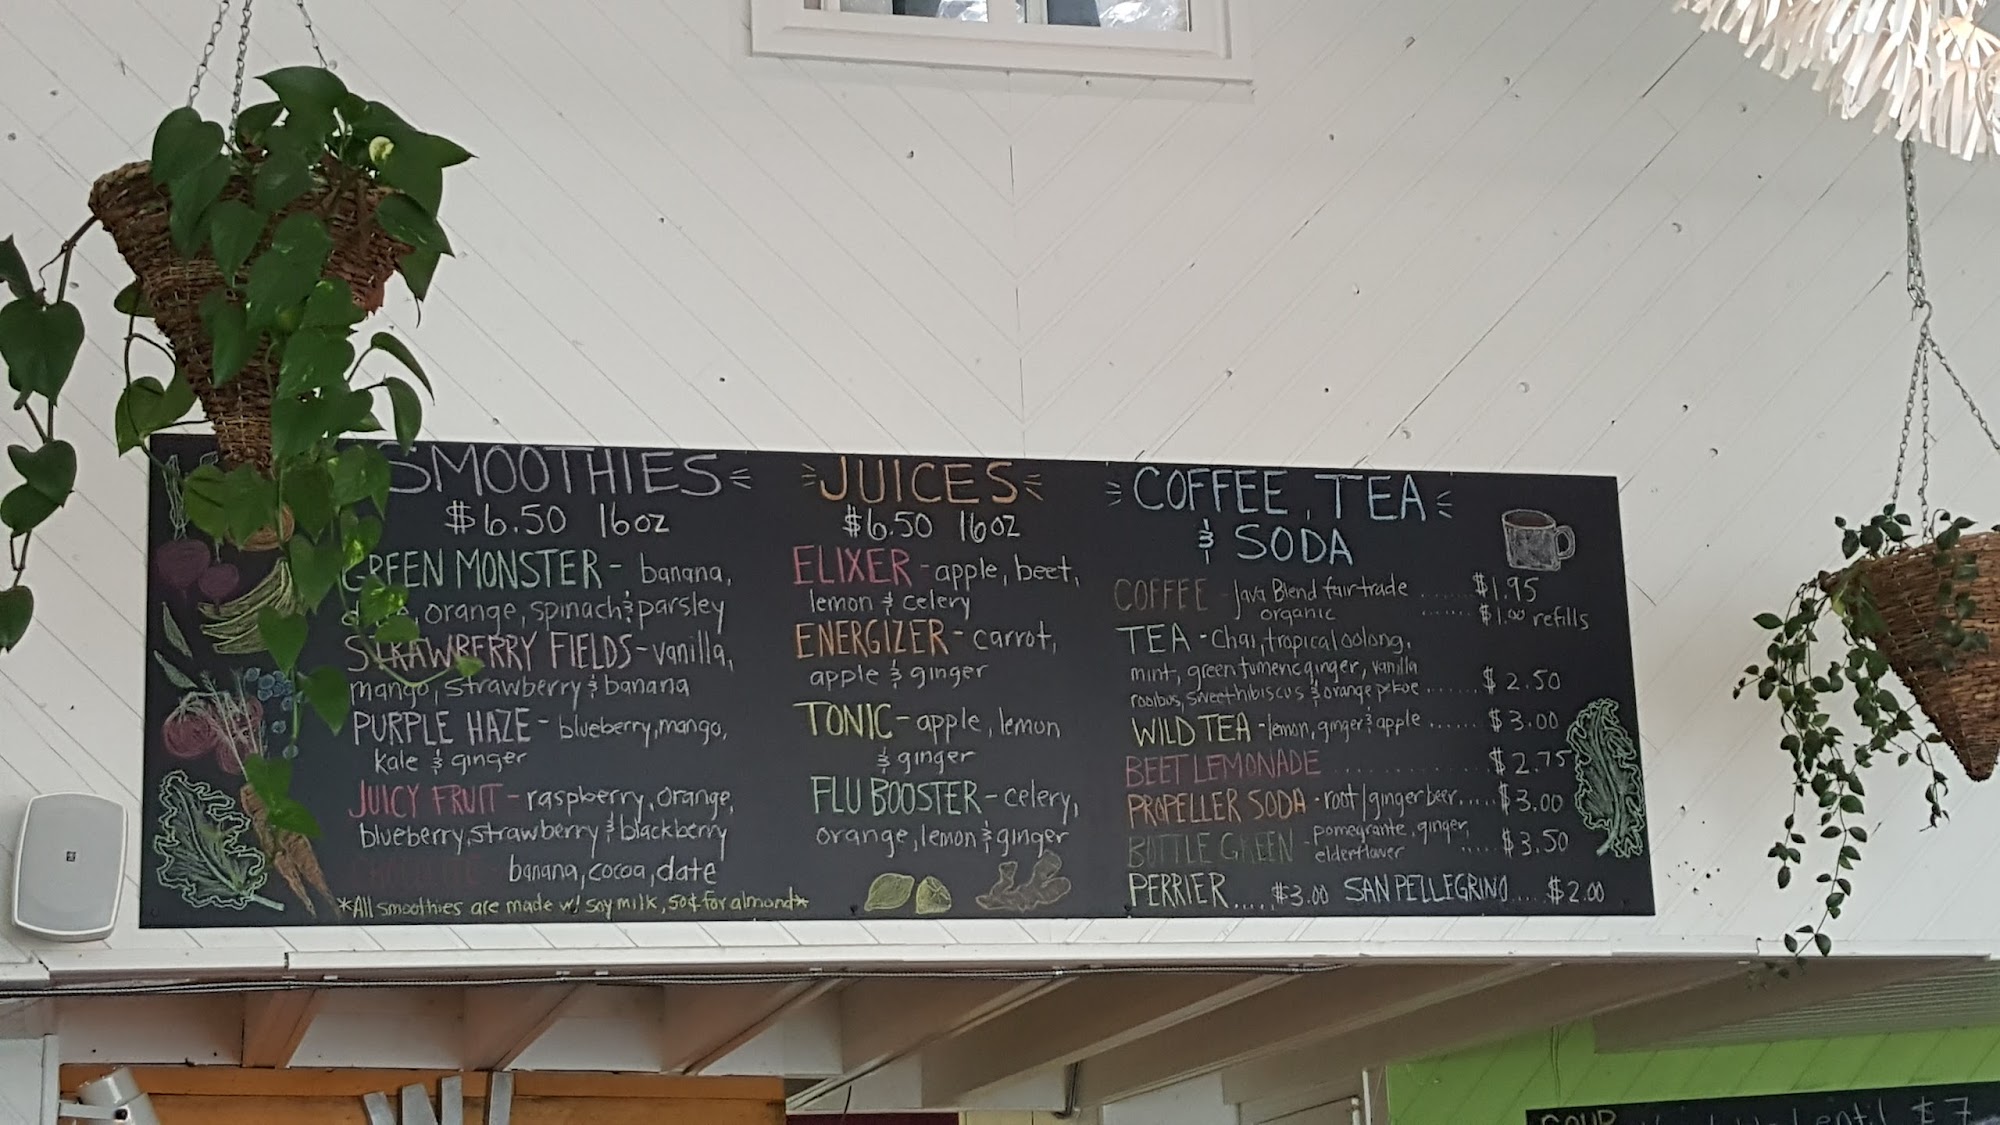 SMOOTHIES
$6.50 16oz
GREEN MONSTER - banana,
orange, spinach & parsley
STRAWBERRY FIELDS - vanilla,
mango, strawberry & banana
PURPLE HAZE - blueberry, mango,
kale & ginger
JUICY FRUIT - raspberry, orange,
blueberry, strawberry & blackberry
banana, cocoa, date
*All smoothies are made w/ soy milk, 50¢ for almond*
JUICES
$6.50 16oz
ELIXER - apple, beet,
lemon & celery
ENERGIZER - carrot,
apple & ginger
TONIC - apple, lemon
& ginger
FLU BOOSTER - celery,
orange, lemon & ginger
COFFEE, TEA
& SODA
COFFEE - Java Blend fair trade ...... $1.95
organic ...... $1.00 refills
TEA - Chai, tropical oolong,
mint, green tumeric ginger, vanilla
rooibus, sweet hibiscus & orange pekoe ...... $2.50
WILD TEA - lemon, ginger & apple ...... $3.00
BEET LEMONADE ............ $2.75
PROPELLER SODA - root/ginger beer..... $3.00
BOTTLE GREEN - pomegrante, ginger,
elderflower ..... $3.50
PERRIER ..... $3.00 SAN PELLEGRINO .... $2.00
SOUP Lentil $7